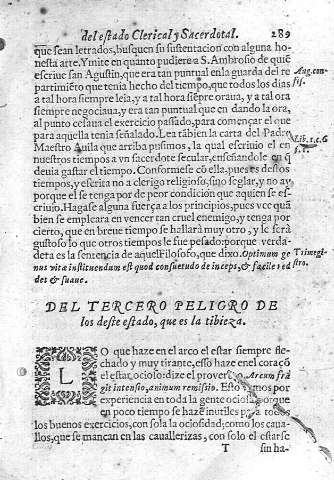 del estado Clerical y Sacerdotal. 289
que sean letrados, busquen su sustentacion con alguna ho-
nesta arte. Ymite en quanto pudiere a S. Ambrosio de quiẽ
escriue san Agustin, que era tan puntual en la guarda del re
partimiẽto que tenia hecho del tiempo, que todos los dias
a tal hora siempre leia, y a tal hora siẽpre oraua, y a tal ora
siempre negociaua, y era tan puntual que en dando la ora,
al punto cessaua el exercicio passado, para començar el que
para aquella tenia señalado. Lea tãbien la carta del Padre
Maestro Auila que arriba pusimos, la qual escriuio el en
nuestros tiempos a vn sacerdote secular, enseñandole en q̃
deuia gastar el tiempo. Conformese cõ ella, pues es destos
tiempos, y escrita no a clerigo religioso, sino seglar, y no ay
porque el se tenga por de peor condicion que aquien se es-
criuio. Hagase alguna fuerça a los principios, pues vee quã
bien se emplea en vencer tan cruel enemigo, y tenga por
cierto, que en breue tiempo se hallará muy otro, y le será
gustoso lo que otros tiempos le fue pesado: porque verda-
dera es la sentencia de aquel Filosofo, que dixo. Optimum ge
nus vitæ instituendum est quod consuetudo de inceps, & facile red
det & suaue.
Aug. con
fes.
Trimegi-
stro.
DEL TERCERO PELIGRO DE
los deste estado, que es la tibieza.
LO que haze en el arco el estar siempre fle-
chado y muy tirante, esso haze en el coraçõ
el estar ocioso: dize el prouerbio, Arcum frã
git intensio, animum remissio. Esto vemos por
experiencia en toda la gente ociosa, porque
en poco tiempo se hazẽ inutiles para todos
los buenos exercicios, con sola la ociosidad; como los caua-
llos, que se mancan en las cauallerizas, con solo el estarse
T sin ha-